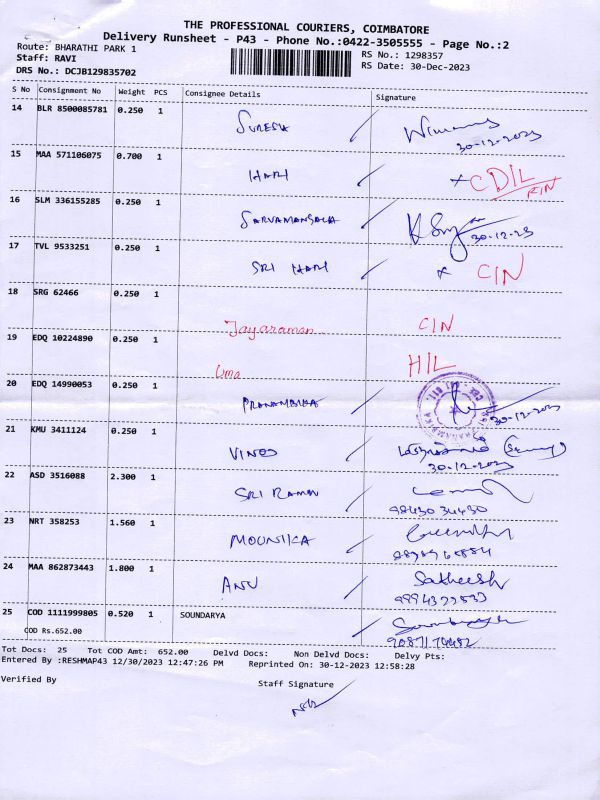 THE PROFESSIONAL COURIERS, COIMBATORE
Delivery Runsheet - P43 - Phone No.:0422-3505555 - Page No.:2
Route: BHARATHI PARK 1 RS No.: 1298357
Staff: RAVI RS Date: 30-Dec-2023
DRS No.: DCJB129835702
S No Consignment No Weight PCS Consignee Details Signature
14 BLR 8500085781 0.250 1 SURESH
30-12-2023
15 MAA 571106075 0.700 1 HARI
16 SLM 336155285 0.250 1 SARVAMANGALA
30-12-23
17 TVL 9533251 0.250 1 SRI HARI CIN
18 SRG 62466 0.250 1
Jayaraman CIN
19 EDQ 10224890 0.250 1
Uma H/L
20 EDQ 14990053 0.250 1 PRANAMBIKA
30-12-2023
21 KMU 3411124 0.250 1 VINOD
30-12-2023
22 ASD 3516088 2.300 1 SRI RAMM
98430 34430
23 NRT 358253 1.560 1 MOUNIKA
24 MAA 862873443 1.800 1 ANU Satheesh
25 COD 1111999805 0.520 1 SOUNDARYA
COD Rs.652.00
Tot Docs: 25 Tot COD Amt: 652.00 Delvd Docs: Non Delvd Docs: Delvy Pts:
Entered By :RESHMAP43 12/30/2023 12:47:26 PM Reprinted On: 30-12-2023 12:58:28
Verified By Staff Signature